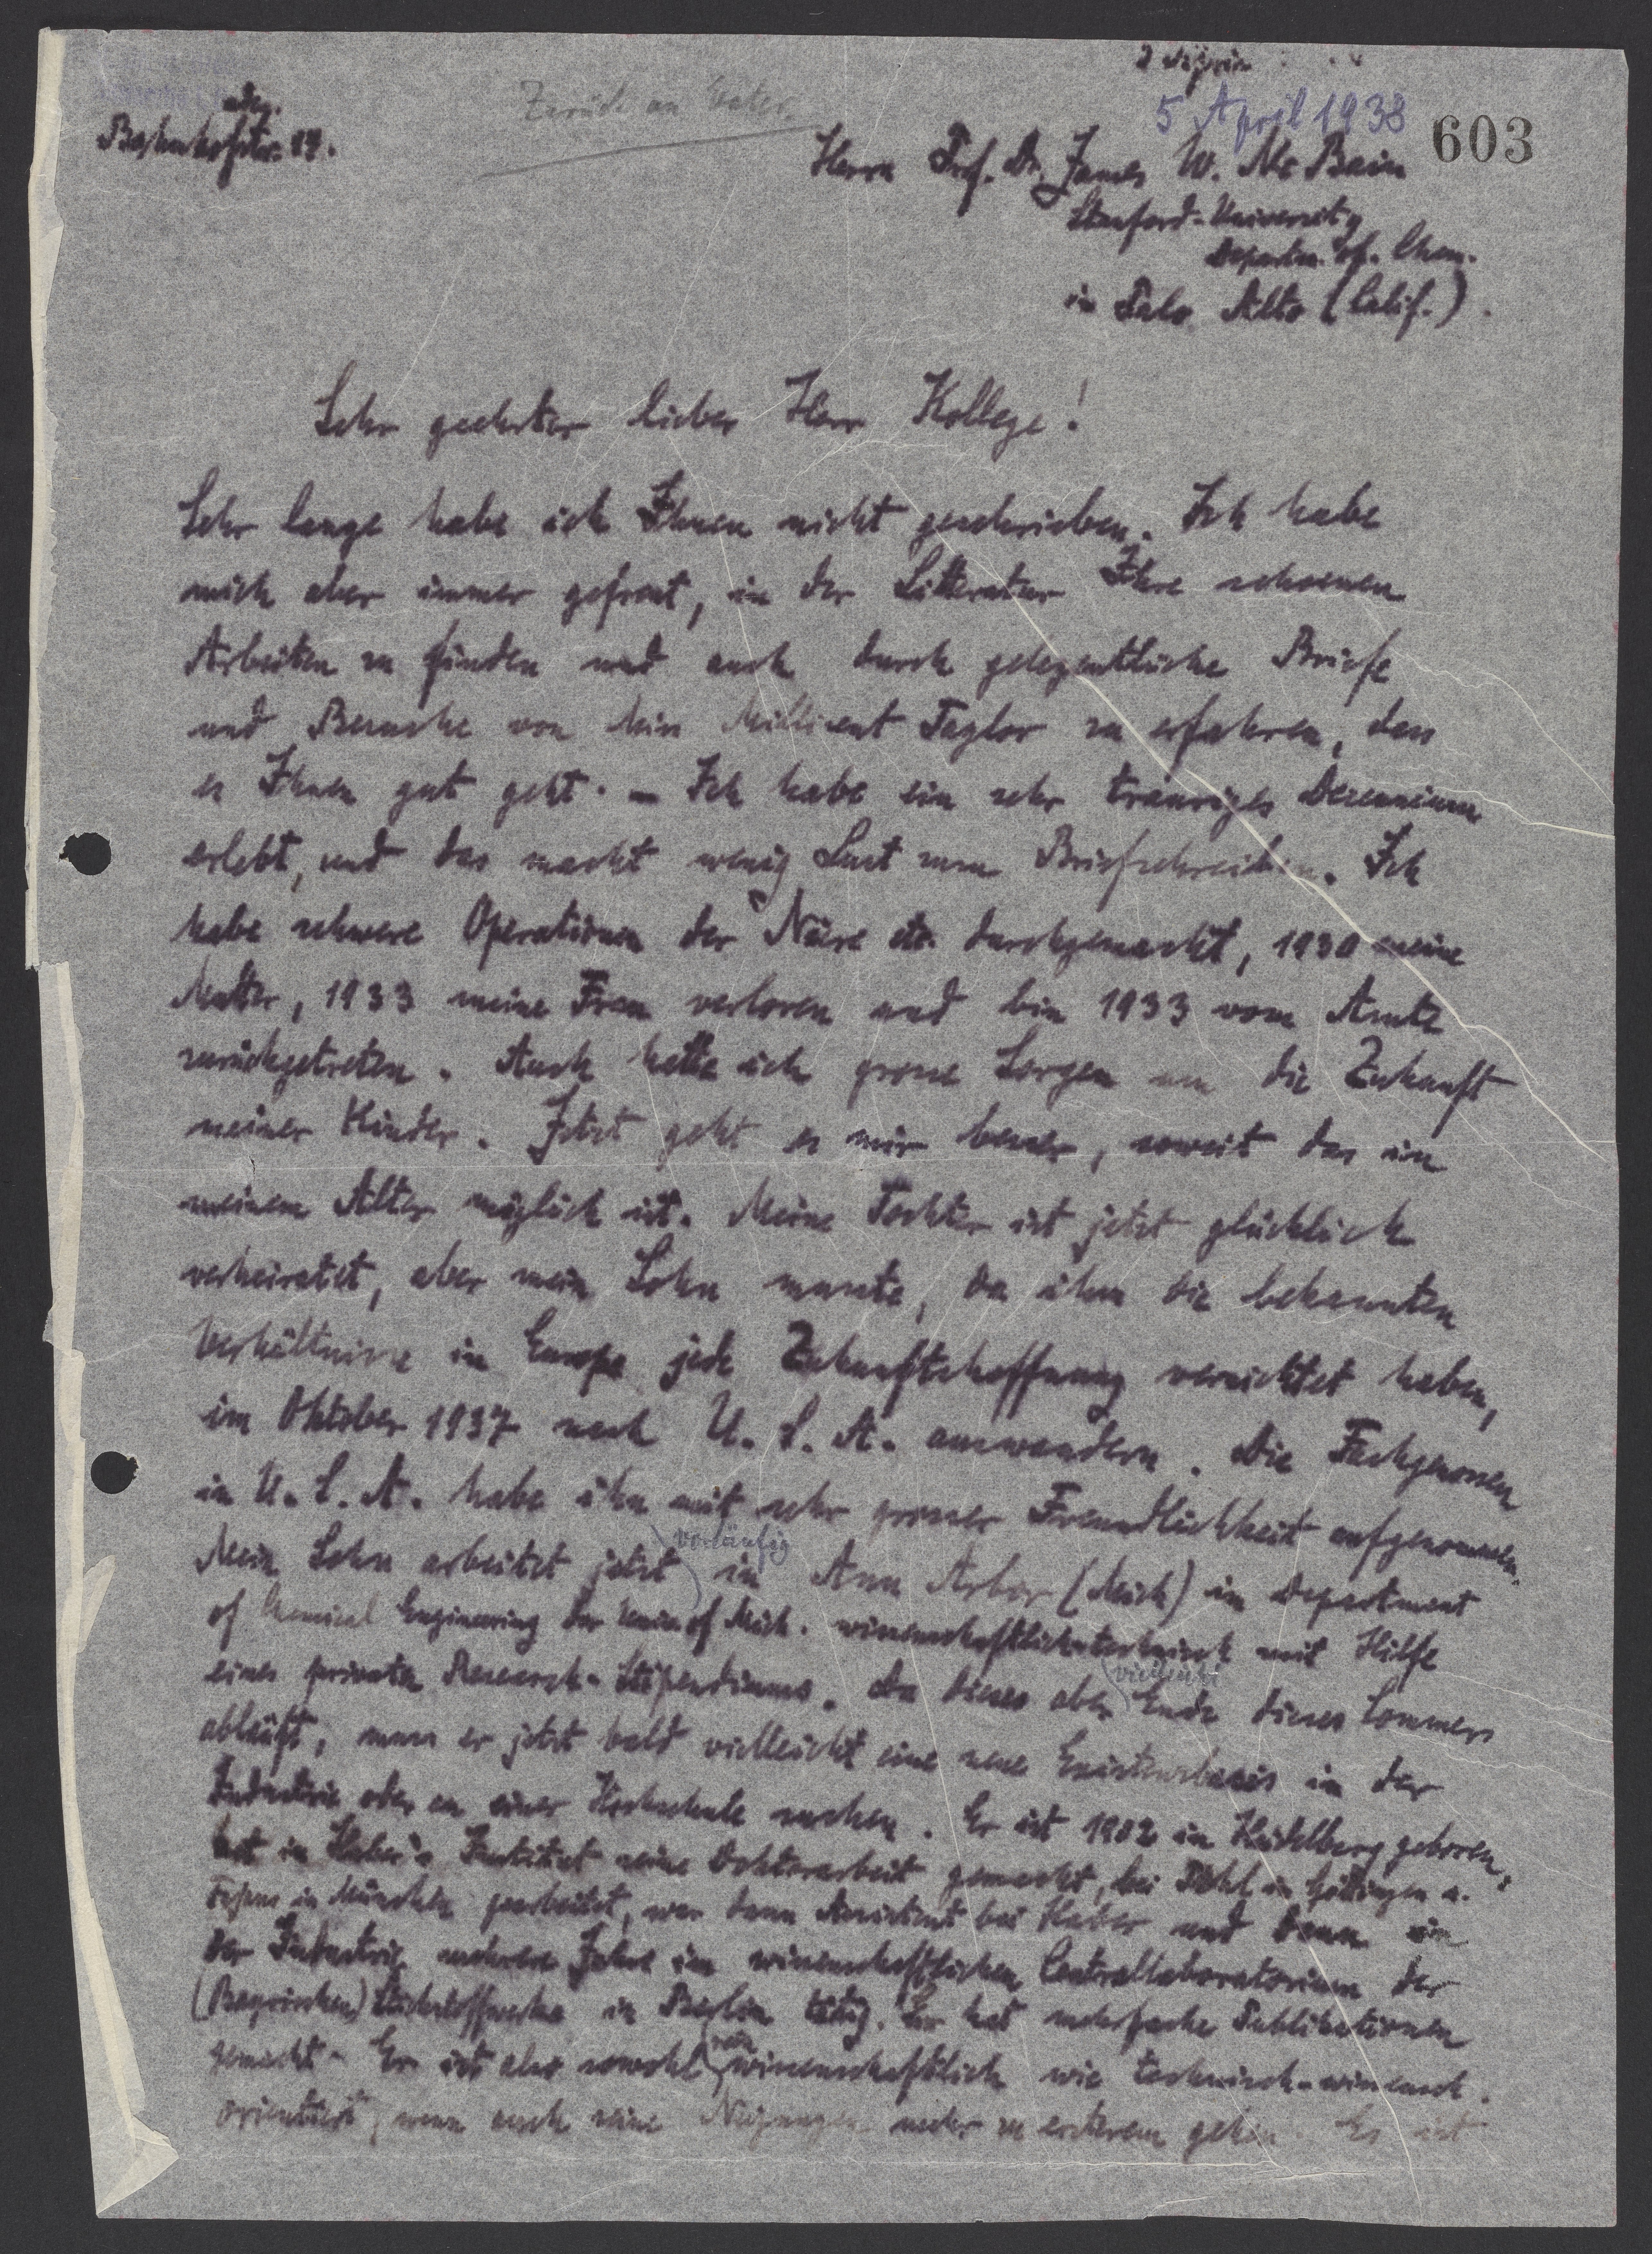 Zurück an Vater.
5 April 1938
603
Bahnhofstr. 27.
Herrn Prof. Dr. James W. Mc Bain
Stanford-University
Departm. of. Chem.
in Palo Alto (Calif.)
Sehr geehrter lieber Herr Kollege!
Sehr lange habe ich Ihnen nicht geschrieben. Ich habe
mich aber immer gefreut, in der Litteratur Ihre schoenen
Arbeiten zu finden und auch durch gelegentliche Briefe
und Besuche von Miss Millicent Taylor zu erfahren, dass
es Ihnen gut geht. – Ich habe ein sehr trauriges Decennium
erlebt, und das macht wenig Lust zum Briefschreiben. Ich
habe schwere Operationen der Niere etc. durchgemacht, 1930 meine
Mutter, 1933 meine Frau verloren und bin 1933 vom Amte
zurückgetreten. Auch hatte ich grosse Sorgen um die Zukunft
meiner Kinder. Jetzt geht es mir besser, soweit das in
meinem Alter möglich ist. Meine Tochter ist jetzt glücklich
verheiratet, aber mein Sohn musste, da ihm die bekannten
Verhältnisse in Europa jede Zukunftshoffnung vernichtet haben,
im Oktober 1937 nach U. S. A. auswandern. Die Fachgenossen
in U. S. A. habe ihn mit sehr grosser Freundlichkeit aufgenommen.
Mein Sohn arbeitet jetzt vorläufig in Ann Arbor (Mich) in Department
of Chemical Engineering der Univ. of Mich. wissenschaftlich-technisch mit Hilfe
eines privaten Research-Stipendiums. Da dieses aber vielleicht Ende dieses Sommers
abläuft, muss er jetzt bald vielleicht eine neue Existenzbasis in der
Industrie oder an einer Hochschule suchen. Er ist 1902 in Heidelberg geboren,
hat in Haber's Institut seine Doktorarbeit gemacht, bei Pohl in Göttingen u.
Fajans in München gearbeitet, war dann Assistent bei Haber und dann in
der Industrie mehrere Jahre im wissenschaftlichen Centrallaboratorium der
(Bayrischen) Stickstoffwerke in Berlin tätig. Er hat mehrfache Publikationen
gemacht – Er ist also sowohl rein wissenschaftlich wie technisch-wissensch.
orientiert, wenn auch seine Neigungen mehr zu ersterem gehen. Er ist